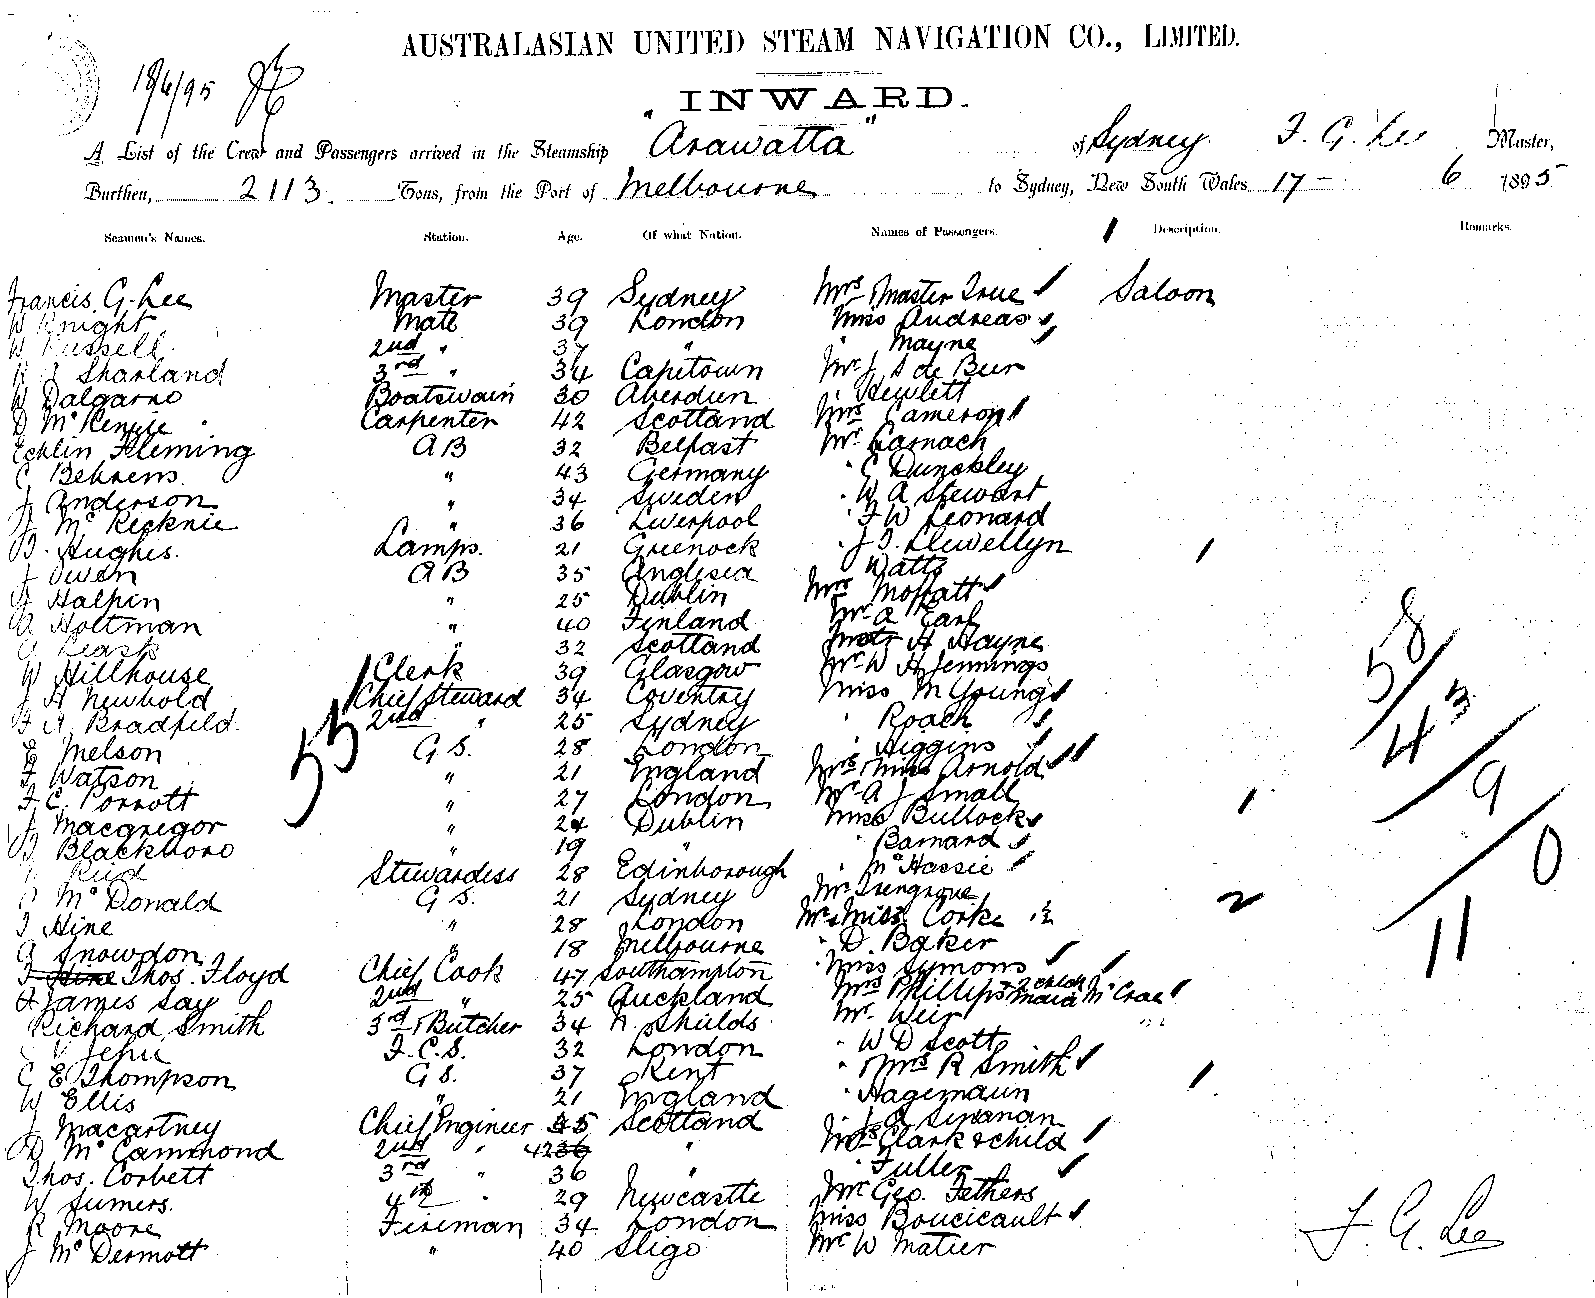 AUSTRALASIAN UNITED STEAM NAVIGATION CO., LIMITED.
18/6/95
INWARD.
A List of the Crew and Passengers arrived in the Steamship "Arawatta" of Sydney F. G. Lee Master,
Burthen, 2113 Tons, from the Port of Melbourne to Sydney, New South Wales 17 - 6 1895
Seamen's Names. Station. Age. Of what Nation. Names of Passengers. Description. Remarks.
Francis G. Lee Master 39 Sydney Mrs Master True Saloon
W Knight Mate 39 London Miss Andreas
W Russell 2nd " 37 " " Mayne
Sharland 3rd " 34 Capetown Mr J S de Beer
W Dalgarno Boatswain 30 Aberdeen " Hewlett
D McKenzie Carpenter 42 Scotland Mrs Cameron
Echlin Fleming AB 32 Belfast Mr Carnach
C Behrens " 43 Germany " C Dunckley
J Anderson " 34 Sweden " W A Stewart
J McKecknie " 36 Liverpool " F W Leonard
Hughes Lamps. 21 Greenock " J D. Llewellyn 1
J Owen AB 35 Anglesea " Watts
Halpin " 25 Dublin Mrs Moffatt
A Holtman " 40 Finland Mr A Earl
Leask " 32 Scotland Mstr H Hayne
W Hillhouse Clerk 39 Glasgow Mr W H Jennings
J H Newbold Chief Steward 34 Coventry Miss M Young
F A Bradfield 2nd " 25 Sydney " Roach
E Melson G S. 28 London " Higgins
F Watson " 21 England Mrs Miss Arnold
F C Porrott " 27 London Mr A J Small 1
J Macgregor " 24 Dublin Miss Bullock
Blackboro " 19 " " Barnard
Reid Stewardess 28 Edinborough " McHassie
McDonald G S. 21 Sydney Mr Trengrove
F Hine " 28 London Mr & Miss Corke 2
G Snowdon " 18 Melbourne " D. Baker
Thos. Floyd Chief Cook 47 Southampton Miss Symons
James Say 2nd " 25 Auckland Mrs Phillips 2 child maid McCrae
Richard Smith 3rd & Butcher 34 N. Shields Mr Weir
Jehu F.C.S. 32 London " W D Scott
C E Thompson G S. 37 Kent " Mrs R Smith
W Ellis " 21 England " Hagemann 1
J Macartney Chief Engineer 45 Scotland " J Sinanan
D McCammond 2nd " 42 " Mrs Clark & child
Thos. Corbett 3rd " 36 " " Fuller
W Sumers. 4th " 29 Newcastle Mr Geo. Fethers
R Moore Fireman 34 London Miss Boucicault
J McDermott " 40 Sligo Mr W Matier
53
58
43
9
0
11
F. G. Lee